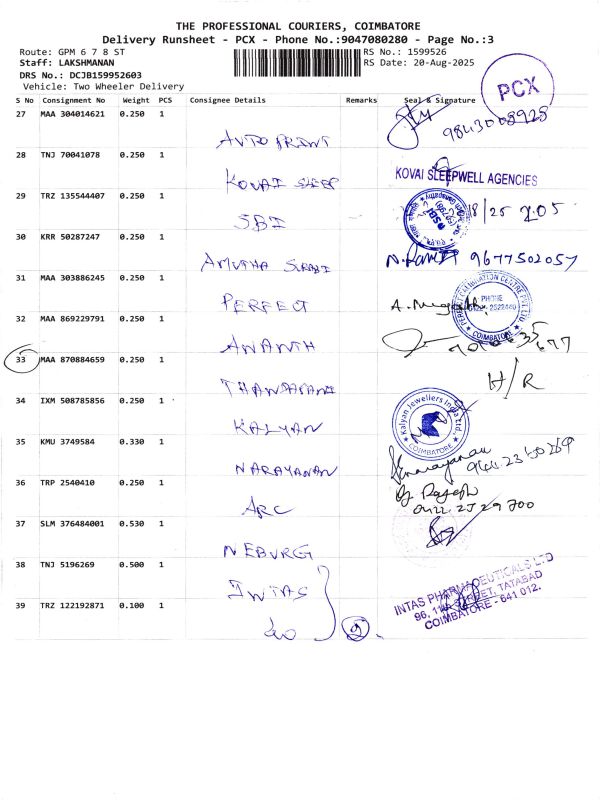 THE PROFESSIONAL COURIERS, COIMBATORE
Delivery Runsheet - PCX - Phone No.:9047080280 - Page No.:3
Route: GPM 6 7 8 ST RS No.: 1599526
Staff: LAKSHMANAN RS Date: 20-Aug-2025
DRS No.: DCJB159952603
Vehicle: Two Wheeler Delivery
PCX
S No Consignment No Weight PCS Consignee Details Remarks Seal & Signature
27 MAA 304014621 0.250 1
AUTO PRINT 9843008928
28 TNJ 70041078 0.250 1
KOVAI SLEEP KOVAI SLEEPWELL AGENCIES
29 TRZ 135544407 0.250 1
SBI 18/25
30 KRR 50287247 0.250 1
AMUTHA SURABI 9677502057
31 MAA 303886245 0.250 1
PERFECT PHONE COIMBATORE
32 MAA 869229791 0.250 1
ANANTH
33 MAA 870884659 0.250 1
H/R
34 IXM 508785856 0.250 1
KALYAN Kalyan Jewellers India Ltd. COIMBATORE
35 KMU 3749584 0.330 1
NARAYANAN
36 TRP 2540410 0.250 1
ARC Rajesh
37 SLM 376484001 0.530 1
NEBURG
38 TNJ 5196269 0.500 1
INTAS INTAS PHARMACEUTICALS LTD
39 TRZ 122192871 0.100 1
do 2 COIMBATORE - 641 012.